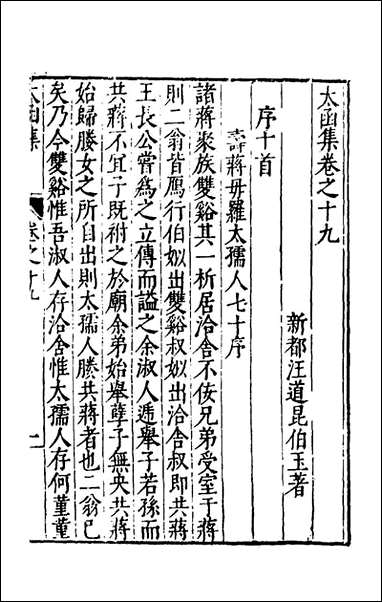 太函集卷之十九
新都汪道昆伯玉著
序十首
壽蔣母羅太孺人七十序
諸蔣聚族雙谿其一析居洽舍不佞兄弟受室于蔣
則二翁皆鴈行伯姒出雙谿叔姒出洽舍叔即共蔣
王長公嘗為之立傳而謚之余淑人遞舉子若孫而
共蔣不宜子既祔之於廟余弟始舉孽子無央共蔣
始歸媵女之所自出則太孺人媵共蔣者也二翁已
矣乃今雙谿惟吾淑人存洽舍惟太孺人存何菫菫
太函集
卷之十九
一